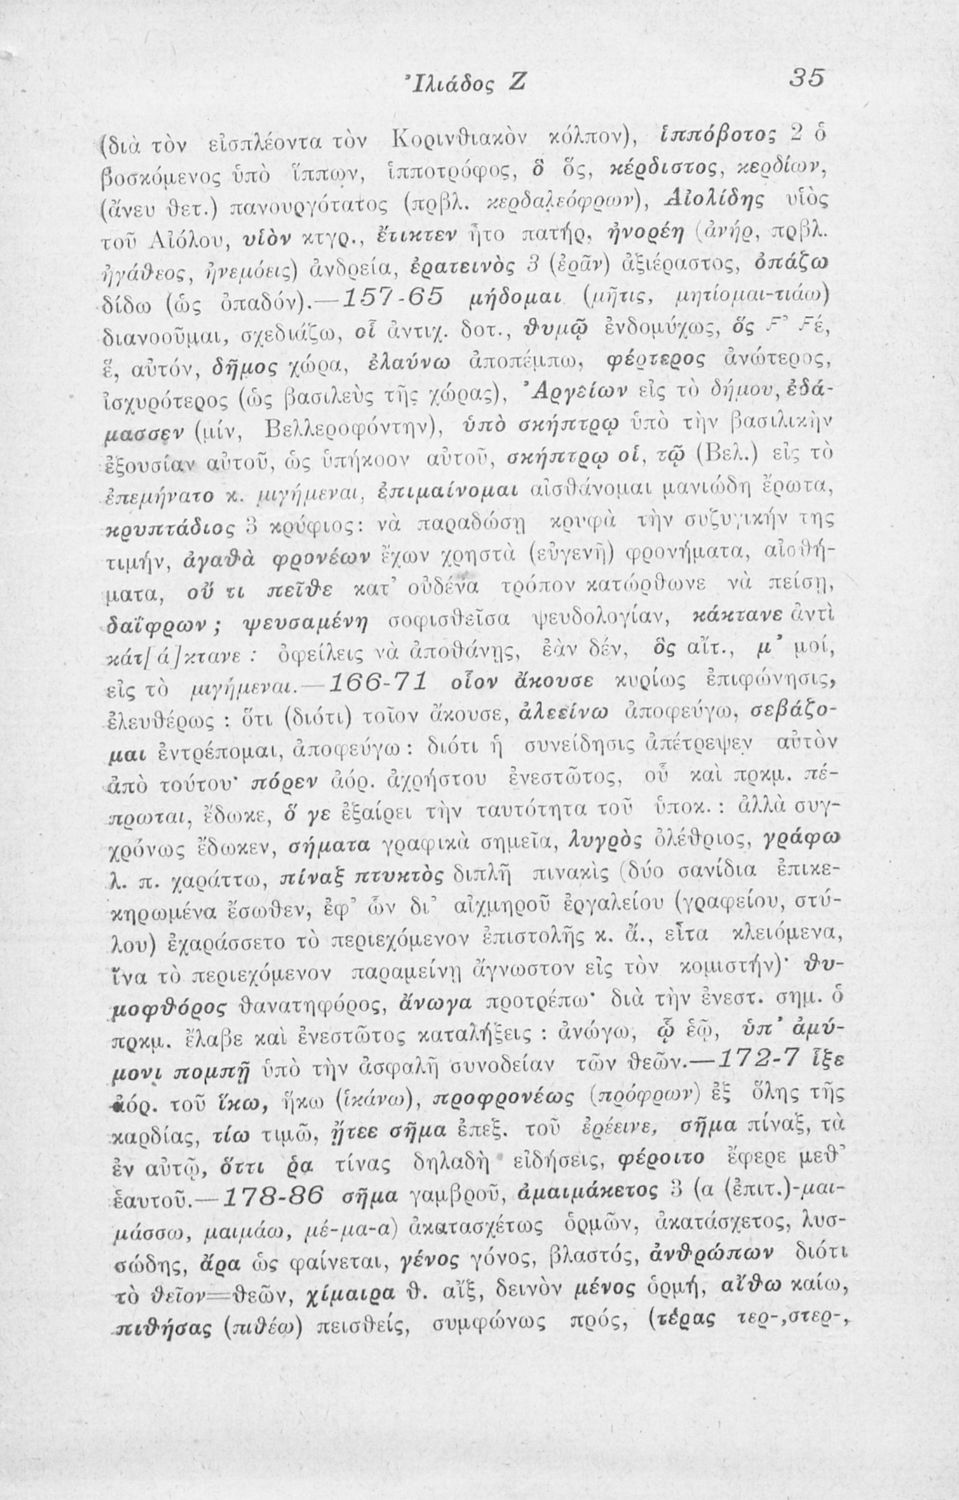 Ἰλιάδος Ζ 35
(διὰ τὸν εἰσπλέοντα τὸν Κορινθιακὸν κόλπον), ἱππόβοτος 2 ὁ
βοσκόμενος ὑπὸ ἵππων, ἱπποτρόφος, ὃ ὅς, κέρδιστος, κερδίων,
(ἄνευ θετ.) πανουργότατος (πρβλ. κερδαλεόφρων), Αἰολίδης υἱὸς
τοῦ Αἰόλου, υἱὸν κτγρ., ἔτικτεν ἦτο πατήρ, ἠνορέη (ἀνήρ, πρβλ.
ἠγάθεος, ἠνεμόεις) ἀνδρεία, ἐρατεινὸς 3 (ἐρᾶν) ἀξιέραστος, ὀπάζω
δίδω (ὡς ὀπαδόν).—157-65 μήδομαι (μῆτις, μητίομαι-τιάω)
διανοοῦμαι, σχεδιάζω, οἷ ἀντιχ. δοτ., θυμῷ ἐνδομύχως, ὅς Ϝ’ Ϝέ,
ἕ, αὐτόν, δῆμος χώρα, ἐλαύνω ἀποπέμπω, φέρτερος ἀνώτερος,
ἰσχυρότερος (ὡς βασιλεὺς τῆς χώρας), Ἀργείων εἰς τὸ δήμου, ἐδά-
μασσεν (μίν, Βελλεροφόντην), ὑπὸ σκήπτρῳ ὑπὸ τὴν βασιλικὴν
ἐξουσίαν αὐτοῦ, ὡς ὑπήκοον αὐτοῦ, σκήπτρῳ οἱ, τῷ (Βελ.) εἰς τὸ
ἐπεμήνατο κ. μιγήμεναι, ἐπιμαίνομαι αἰσθάνομαι μανιώδη ἔρωτα,
κρυπτάδιος 3 κρύφιος: νὰ παραδώσῃ κρυφὰ τὴν συζυγικήν της
τιμήν, ἀγαθὰ φρονέων ἔχων χρηστὰ (εὐγενῆ) φρονήματα, αἰσθή-
ματα, οὔ τι πεῖθε κατ’ οὐδένα τρόπον κατώρθωνε νὰ πείσῃ,
δαΐφρων ; ψευσαμένη σοφισθεῖσα ψευδολογίαν, κάκτανε ἀντὶ
κάτ[ά]κτανε : ὀφείλεις νὰ ἀποθάνῃς, ἐὰν δέν, ὃς αἴτ., μ’ μοί,
εἰς τὸ μιγήμεναι.—166-71 οἷον ἄκουσε κυρίως ἐπιφώνησις,
ἐλευθέρως : ὅτι (διότι) τοῖον ἄκουσε, ἀλεείνω ἀποφεύγω, σεβάζο-
μαι ἐντρέπομαι, ἀποφεύγω : διότι ἡ συνείδησις ἀπέτρεψεν αὐτὸν
ἀπὸ τούτου· πόρεν ἀόρ. ἀχρήστου ἐνεστῶτος, οὗ καὶ πρκμ. πέ-
πρωται, ἔδωκε, ὅ γε ἐξαίρει τὴν ταυτότητα τοῦ ὑποκ. : ἀλλὰ συγ-
χρόνως ἔδωκεν, σήματα γραφικὰ σημεῖα, λυγρὸς ὀλέθριος, γράφω
λ. π. χαράττω, πίναξ πτυκτὸς διπλῆ πινακὶς (δύο σανίδια ἐπικε-
κηρωμένα ἔσωθεν, ἐφ’ ὧν δι’ αἰχμηροῦ ἐργαλείου (γραφείου, στύ-
λου) ἐχαράσσετο τὸ περιεχόμενον ἐπιστολῆς κ. ἄ., εἶτα κλειόμενα,
ἵνα τὸ περιεχόμενον παραμείνῃ ἄγνωστον εἰς τὸν κομιστήν)· θυ-
μοφθόρος θανατηφόρος, ἄνωγα προτρέπω· διὰ τὴν ἐνεστ. σημ. ὁ
πρκμ. ἔλαβε καὶ ἐνεστῶτος καταλήξεις : ἀνώγω, ᾧ ἑῷ, ὑπ’ ἀμύ-
μονι πομπῇ ὑπὸ τὴν ἀσφαλῆ συνοδείαν τῶν θεῶν.—172-7 ἷξε
ἀόρ. τοῦ ἵκω, ἥκω (ἱκάνω), προφρονέως (πρόφρων) ἐξ ὅλης τῆς
καρδίας, τίω τιμῶ, ᾔτεε σῆμα ἐπεξ. τοῦ ἐρέεινε, σῆμα πίναξ, τὰ
ἐν αὐτῷ, ὅττι ῥα τίνας δηλαδὴ εἰδήσεις, φέροιτο ἔφερε μεθ’
ἑαυτοῦ.—178-86 σῆμα γαμβροῦ, ἀμαιμάκετος 3 (α (ἐπιτ.)-μαι-
μάσσω, μαιμάω, μέ-μα-α) ἀκατασχέτως ὁρμῶν, ἀκατάσχετος, λυσ-
σώδης, ἄρα ὡς φαίνεται, γένος γόνος, βλαστός, ἀνθρώπων διότι
τὸ θεῖον=θεῶν, χίμαιρα θ. αἴξ, δεινὸν μένος ὁρμή, αἴθω καίω,
πιθήσας (πιθέω) πεισθείς, συμφώνως πρός, (τέρας τερ-,στερ-,